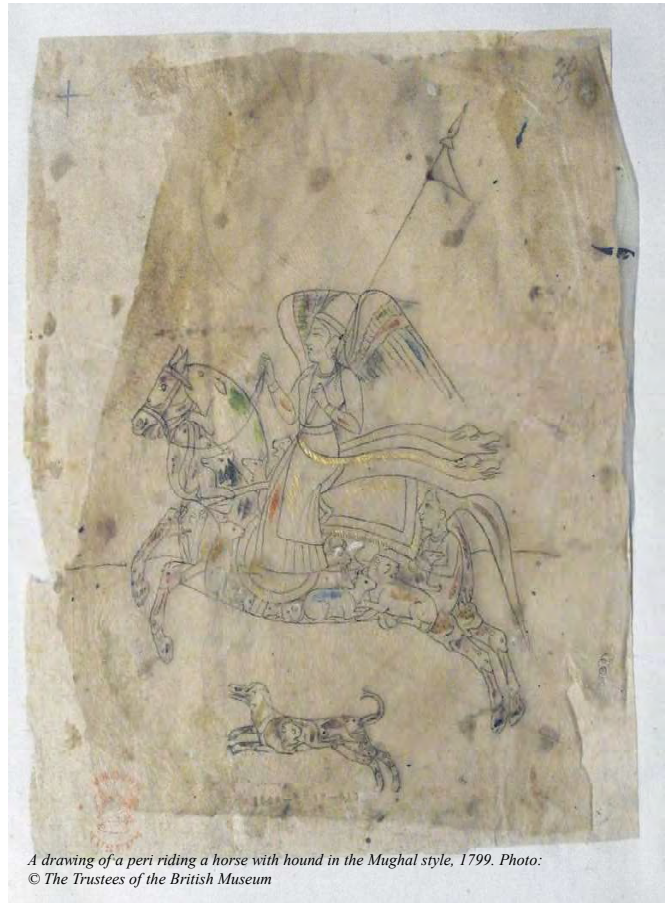 A drawing of a peri riding a horse with hound in the Mughal style, 1799. Photo:
© The Trustees of the British Museum